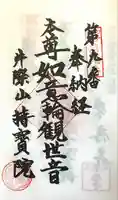 第九番
奉納経
本尊如意輪観世音
岸際山持寳院